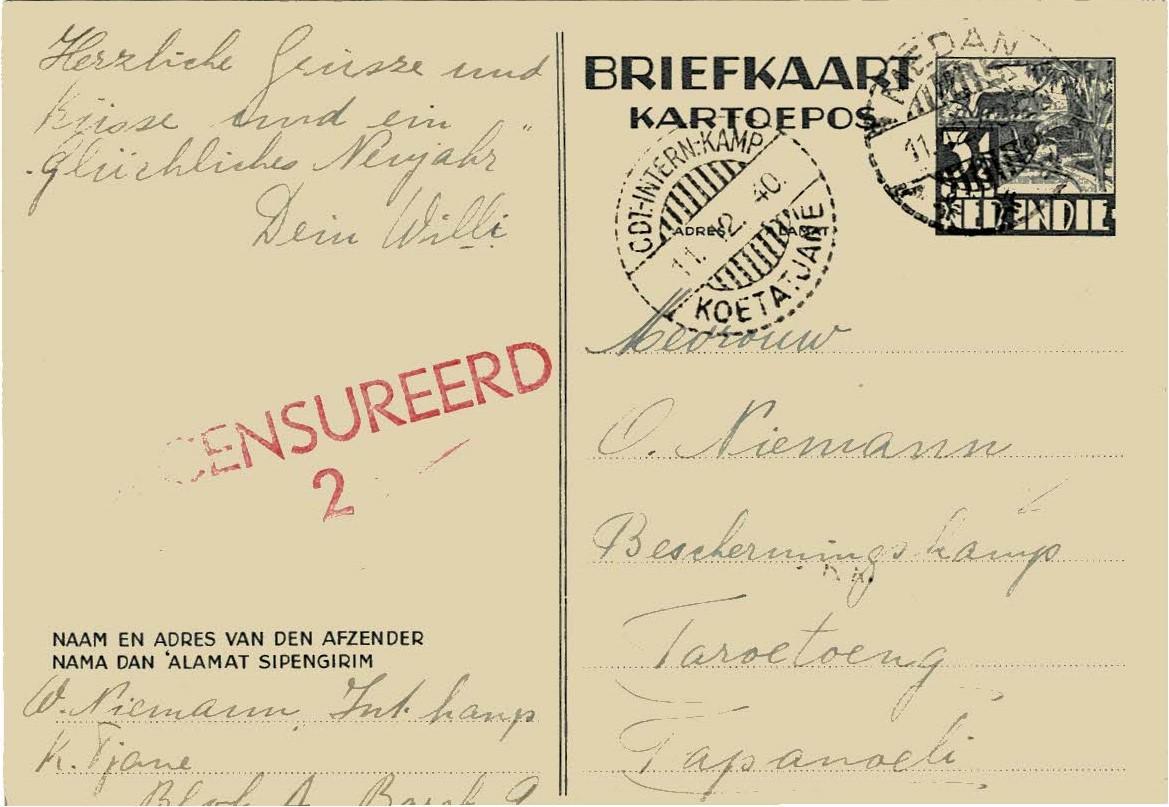 Herzliche Grüsse und
Küsse und ein
Glückliches Neujahr
Dein Willi
CENSUREERD
2
NAAM EN ADRES VAN DEN AFZENDER
NAMA DAN 'ALAMAT SIPENGIRIM
W. Niemann, Int. kamp
K. Tjane
Blok A Barak 9
BRIEFKAART
KARTOEPOS
ADRES ALAMAT
CDT-INTERN:KAMP
11. 12. 40.
KOETATJANE
MEDAN
11.12
3½
NED INDIE
Mevrouw
O. Niemann
Beschermingskamp
Taroetoeng
Tapanoeli